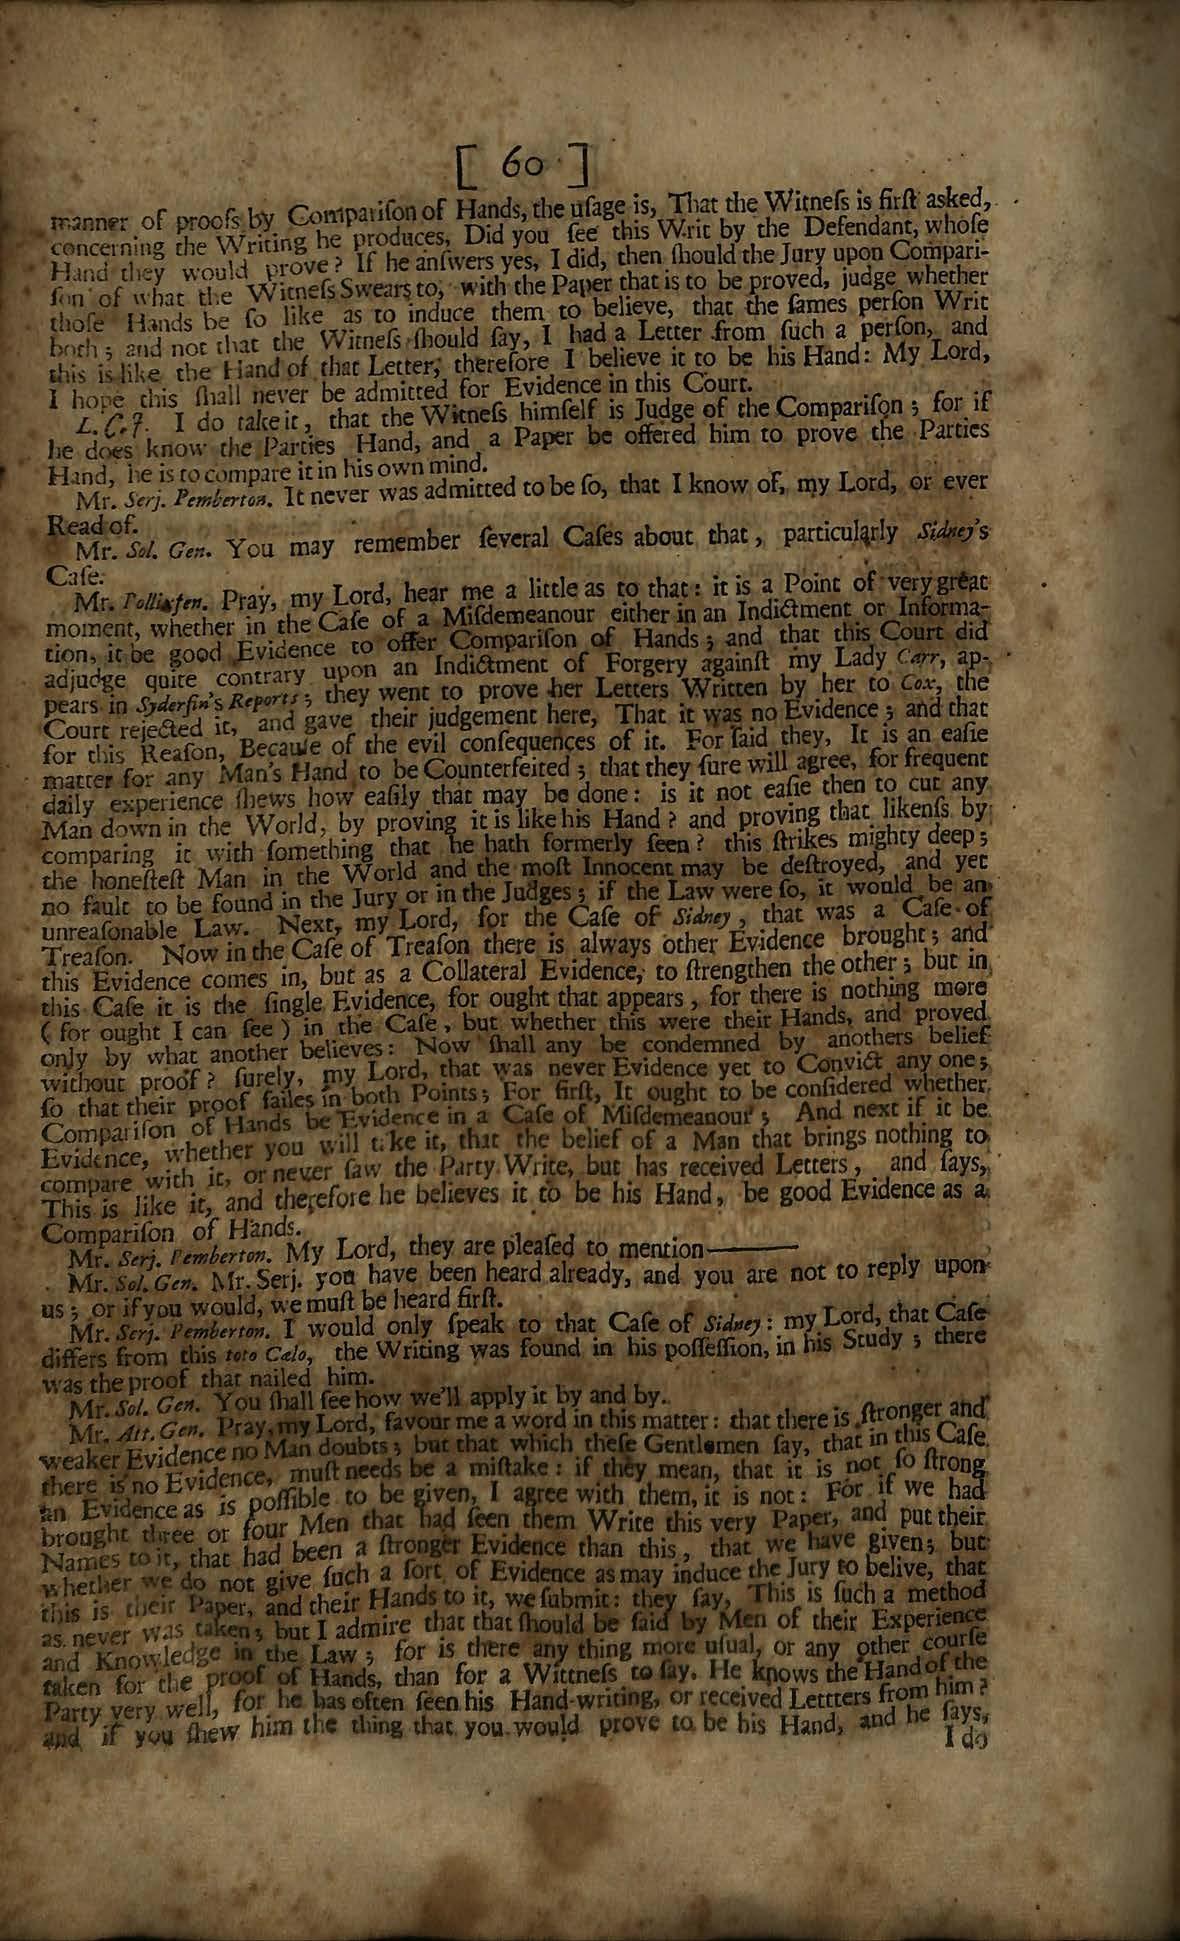 [ 60 ]
manner of proofs by Compariſon of Hands, the uſage is, That the Witneſs is firſt asked,
concerning the Writing he produces, Did you ſee this Writ by the Defendant, whoſe
Hand they would prove? If he anſwers yes, I did, then ſhould the Jury upon Compari-
ſon of what the Witneſs Swears to, with the Paper that is to be proved, judge whether
thoſe Hands be ſo like as to induce them to believe, that the ſames perſon Writ
both; and not that the Witneſs ſhould ſay, I had a Letter from ſuch a perſon, and
this is like the Hand of that Letter, therefore I believe it to be his Hand: My Lord,
I hope this ſhall never be admitted for Evidence in this Court.
L. C. J. I do take it, that the Witneſs himſelf is Judge of the Compariſon; for if
he does know the Parties Hand, and a Paper be offered him to prove the Parties
Hand, he is to compare it in his own mind.
Mr. Serj. Pemberton. It never was admitted to be ſo, that I know of, my Lord, or ever
Read of.
Mr. Sol. Gen. You may remember ſeveral Caſes about that, particularly Sidney's
Caſe.
Mr. Pollixfen. Pray, my Lord, hear me a little as to that: it is a Point of very great
moment, whether in the Caſe of a Miſdemeanour either in an Indictment or Informa-
tion, it be good Evidence to offer Compariſon of Hands; and that this Court did
adjudge quite contrary upon an Indictment of Forgery againſt my Lady Carr, ap-
pears in Syderfin's Reports; they went to prove her Letters Written by her to Cox, the
Court rejected it, and gave their judgement here, That it was no Evidence; and that
for this Reaſon, Becauſe of the evil conſequences of it. For ſaid they, It is an eaſie
matter for any Man's Hand to be Counterfeited; that they ſure will agree, for frequent
daily experience ſhews how eaſily that may be done: is it not eaſie then to cut any
Man down in the World, by proving it is like his Hand? and proving that likenſs by
comparing it with ſomething that he hath formerly ſeen? this ſtrikes mighty deep;
the honeſteſt Man in the World and the moſt Innocent may be deſtroyed, and yet
no fault to be found in the Jury or in the Judges; if the Law were ſo, it would be an
unreaſonable Law. Next, my Lord, for the Caſe of Sidney, that was a Caſe of
Treaſon. Now in the Caſe of Treaſon there is always other Evidence brought; and
this Evidence comes in, but as a Collateral Evidence, to ſtrengthen the other; but in
this Caſe it is the ſingle Evidence, for ought that appears, for there is nothing more
( for ought I can ſee ) in the Caſe, but whether this were their Hands, and proved
only by what another believes: Now ſhall any be condemned by anothers belief
without proof? ſurely, my Lord, that was never Evidence yet to Convict any one;
ſo that their proof failes in both Points; For firſt, It ought to be conſidered whether
Compariſon of Hands be Evidence in a Caſe of Miſdemeanour; And next if it be
Evidence, whether you will take it, that the belief of a Man that brings nothing to
compare with it, or never ſaw the Party Write, but has received Letters, and ſays,
This is like it, and therefore he believes it to be his Hand, be good Evidence as a
Compariſon of Hands.
Mr. Serj. Pemberton. My Lord, they are pleaſed to mention———
Mr. Sol. Gen. Mr. Serj. you have been heard already, and you are not to reply upon
us; or if you would, we muſt be heard firſt.
Mr. Serj. Pemberton. I would only ſpeak to that Caſe of Sidney: my Lord, that Caſe
differs from this toto Cælo, the Writing was found in his poſſeſſion, in his Study; there
was the proof that nailed him.
Mr. Sol. Gen. You ſhall ſee how we'll apply it by and by.
Mr. Att. Gen. Pray, my Lord, favour me a word in this matter: that there is ſtronger and
weaker Evidence no Man doubts; but that which theſe Gentlemen ſay, that in this Caſe
there is no Evidence, muſt needs be a miſtake: if they mean, that it is not ſo ſtrong
an Evidence as is poſſible to be given, I agree with them, it is not: For if we had
brought three or four Men that had ſeen them Write this very Paper, and put their
Names to it, that had been a ſtronger Evidence than this, that we have given; but
whether we do not give ſuch a ſort of Evidence as may induce the Jury to belive, that
this is their Paper, and their Hands to it, we ſubmit: they ſay, This is ſuch a method
as never was taken; but I admire that that ſhould be ſaid by Men of their Experience
and Knowledge in the Law; for is there any thing more uſual, or any other courſe
taken for the proof of Hands, than for a Wittneſs to ſay, He knows the Hand of the
Party very well, for he has often ſeen his Hand-writing, or received Lettters from him?
and if you ſhew him the thing that you would prove to be his Hand, and he ſays,
I do